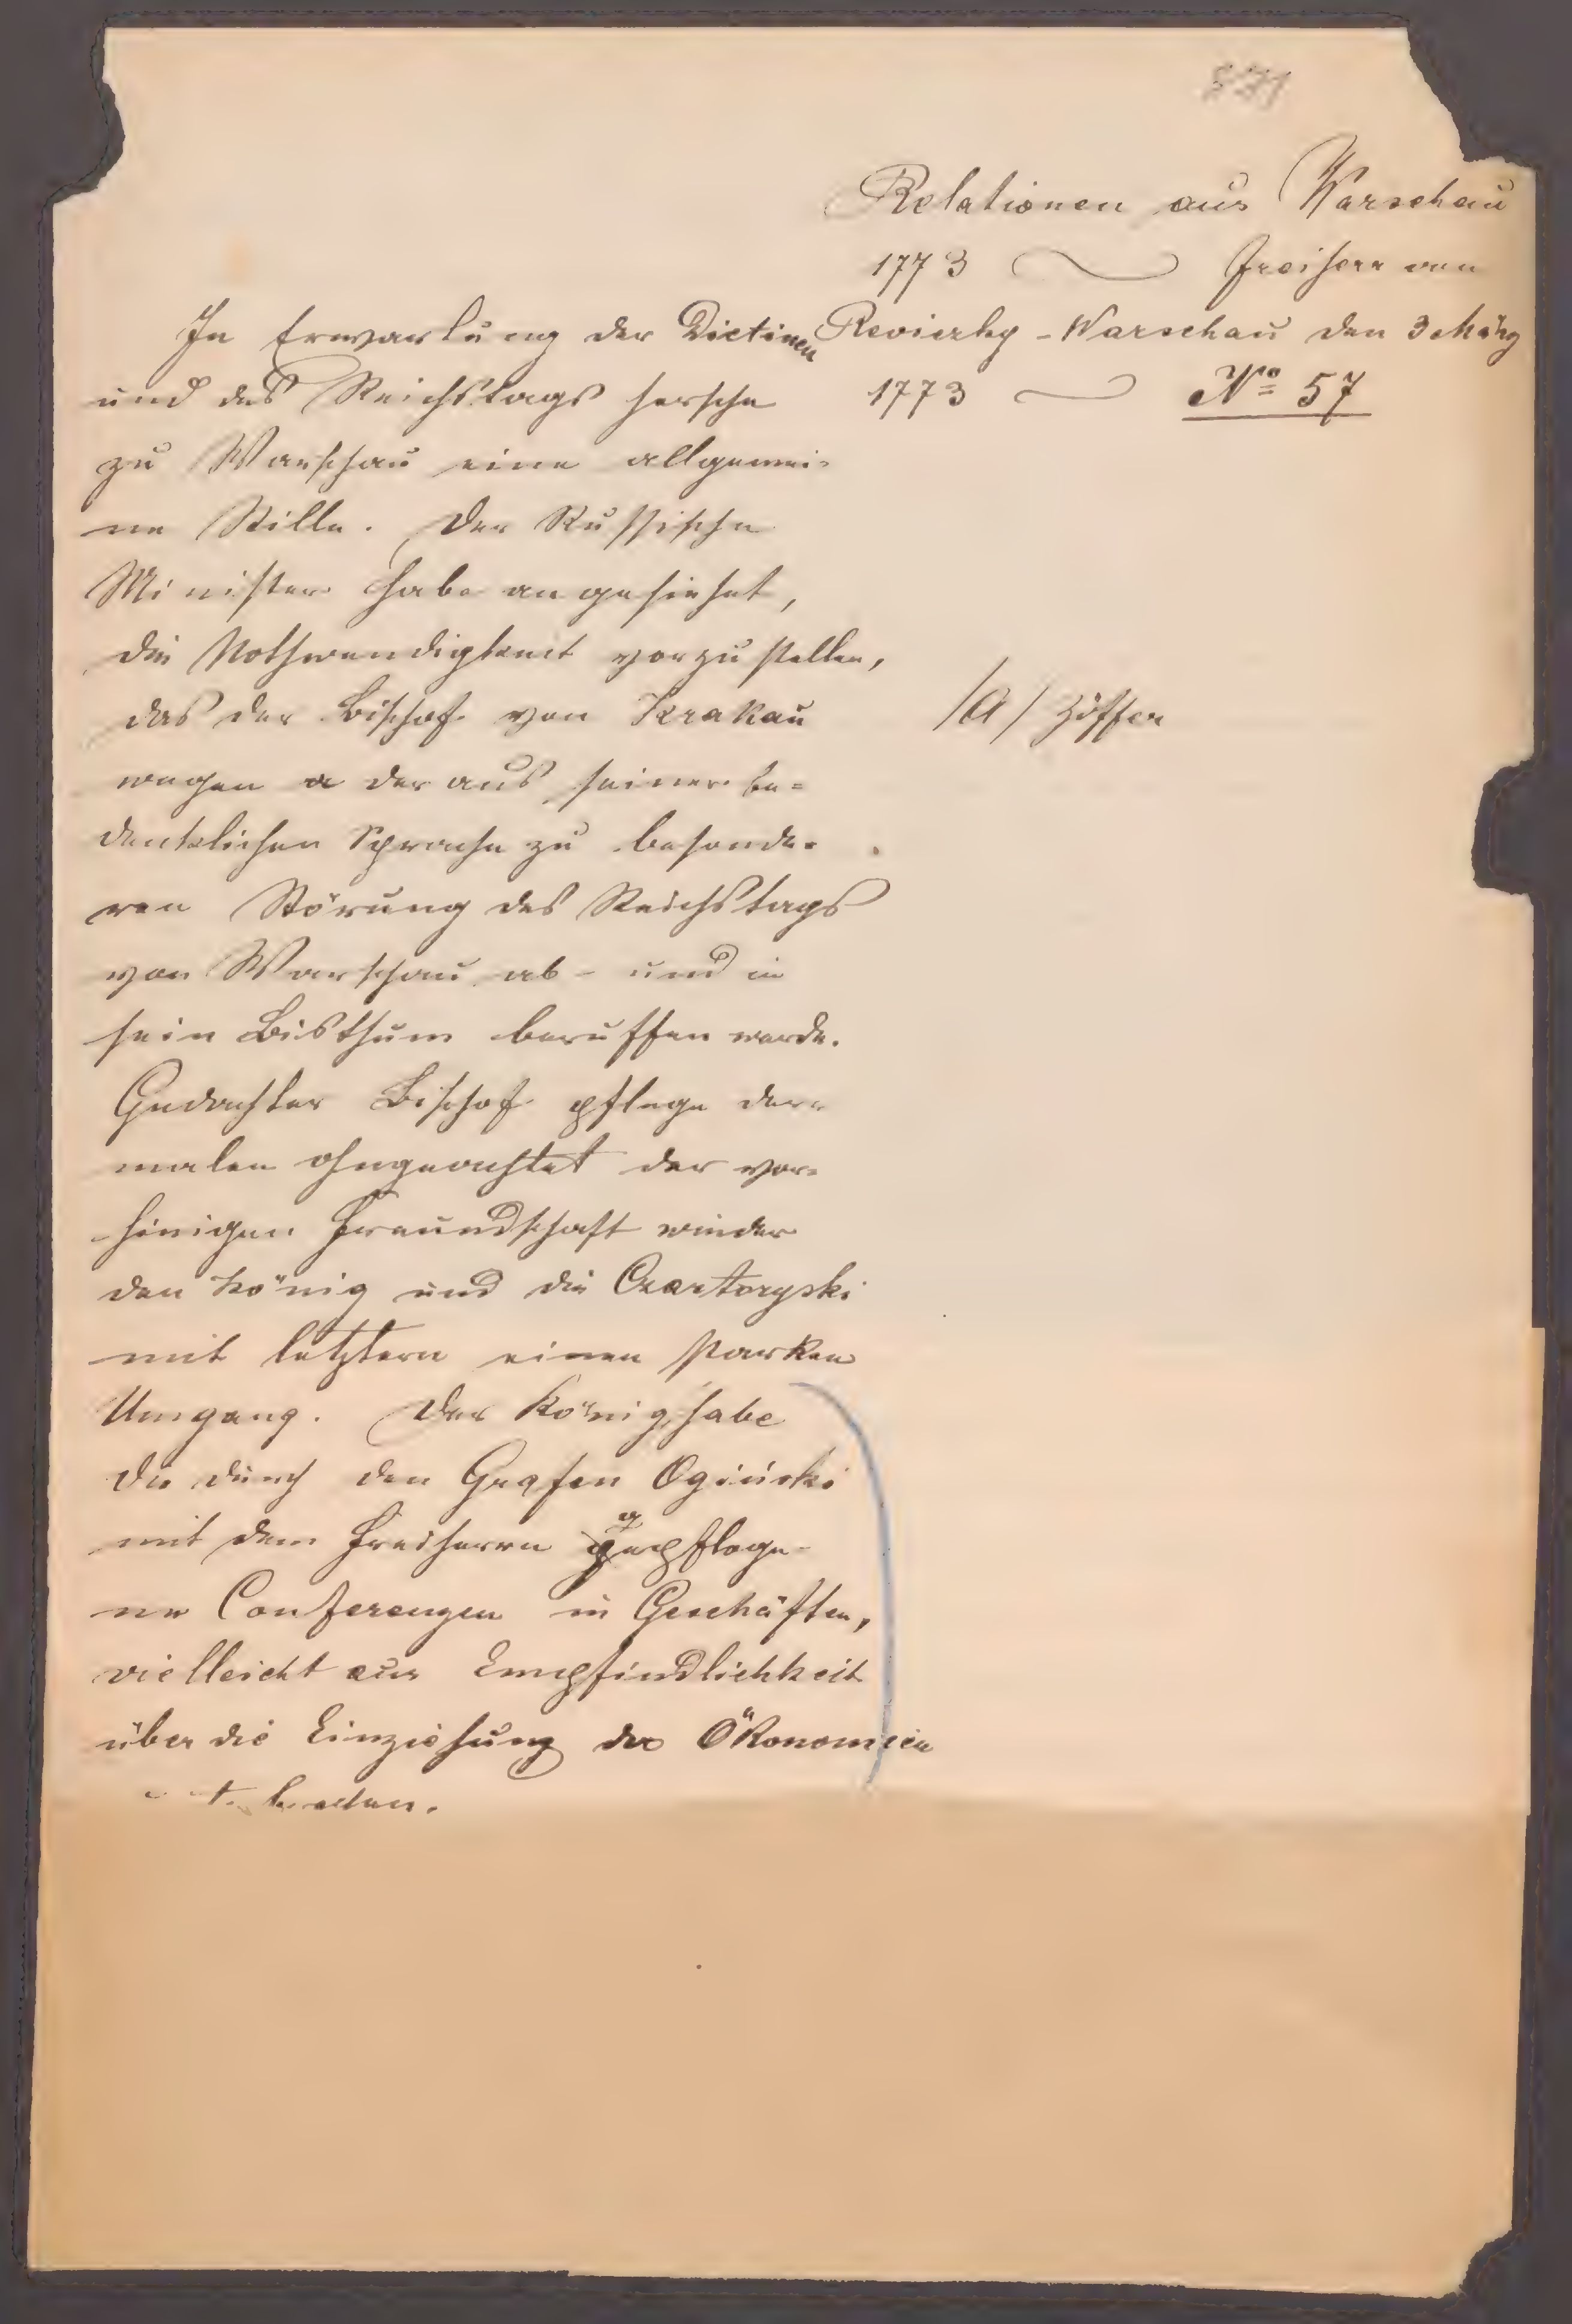 Relationen aus Warschau
1773 Freiherr von
Reviczky - Warschau den 3 März
1773 Nº 57
In Erwartung der Dietinen
und des Reichstags hersche
zu Warschau eine allgemei-
ne Stille. Der Russische
Minister habe angesiehet,
die Nothwendigkeit vorzustellen,
das der Bischof von Krakau
wegen a der aus seiner be-
denklichen Sprache zu besonde-
ren Störung des Reichstags
von Warschau ab- und in
sein Bisthum beruffen werde.
Gedachter Bischof pflege der-
malen ohngeachtet der vor-
hinigen Freundschaft wieder
den König und die Czartoryski
mit letztern einen starken
Umgang. Der König habe
die durch den Grafen Ogiński
mit dem Freiherrn gepfloge-
ne Conferenzen in Geschäften,
vielleicht aus Empfindlichkeit
über die Einziehung der Ökonomien
/a/ Ziffer